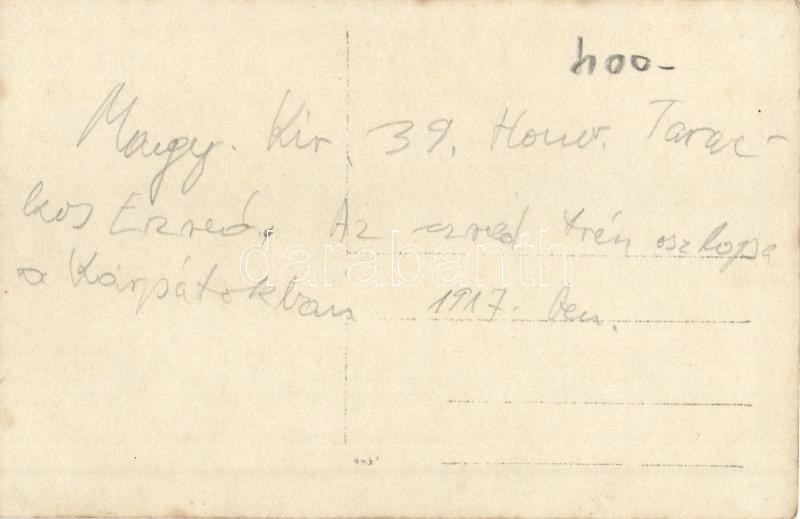 400-
Magy. Kir. 39. Honv. Tarac-
kos Ezred. Az ezred trén oszlopa
a Kárpátokban 1917-ben.
darabanth